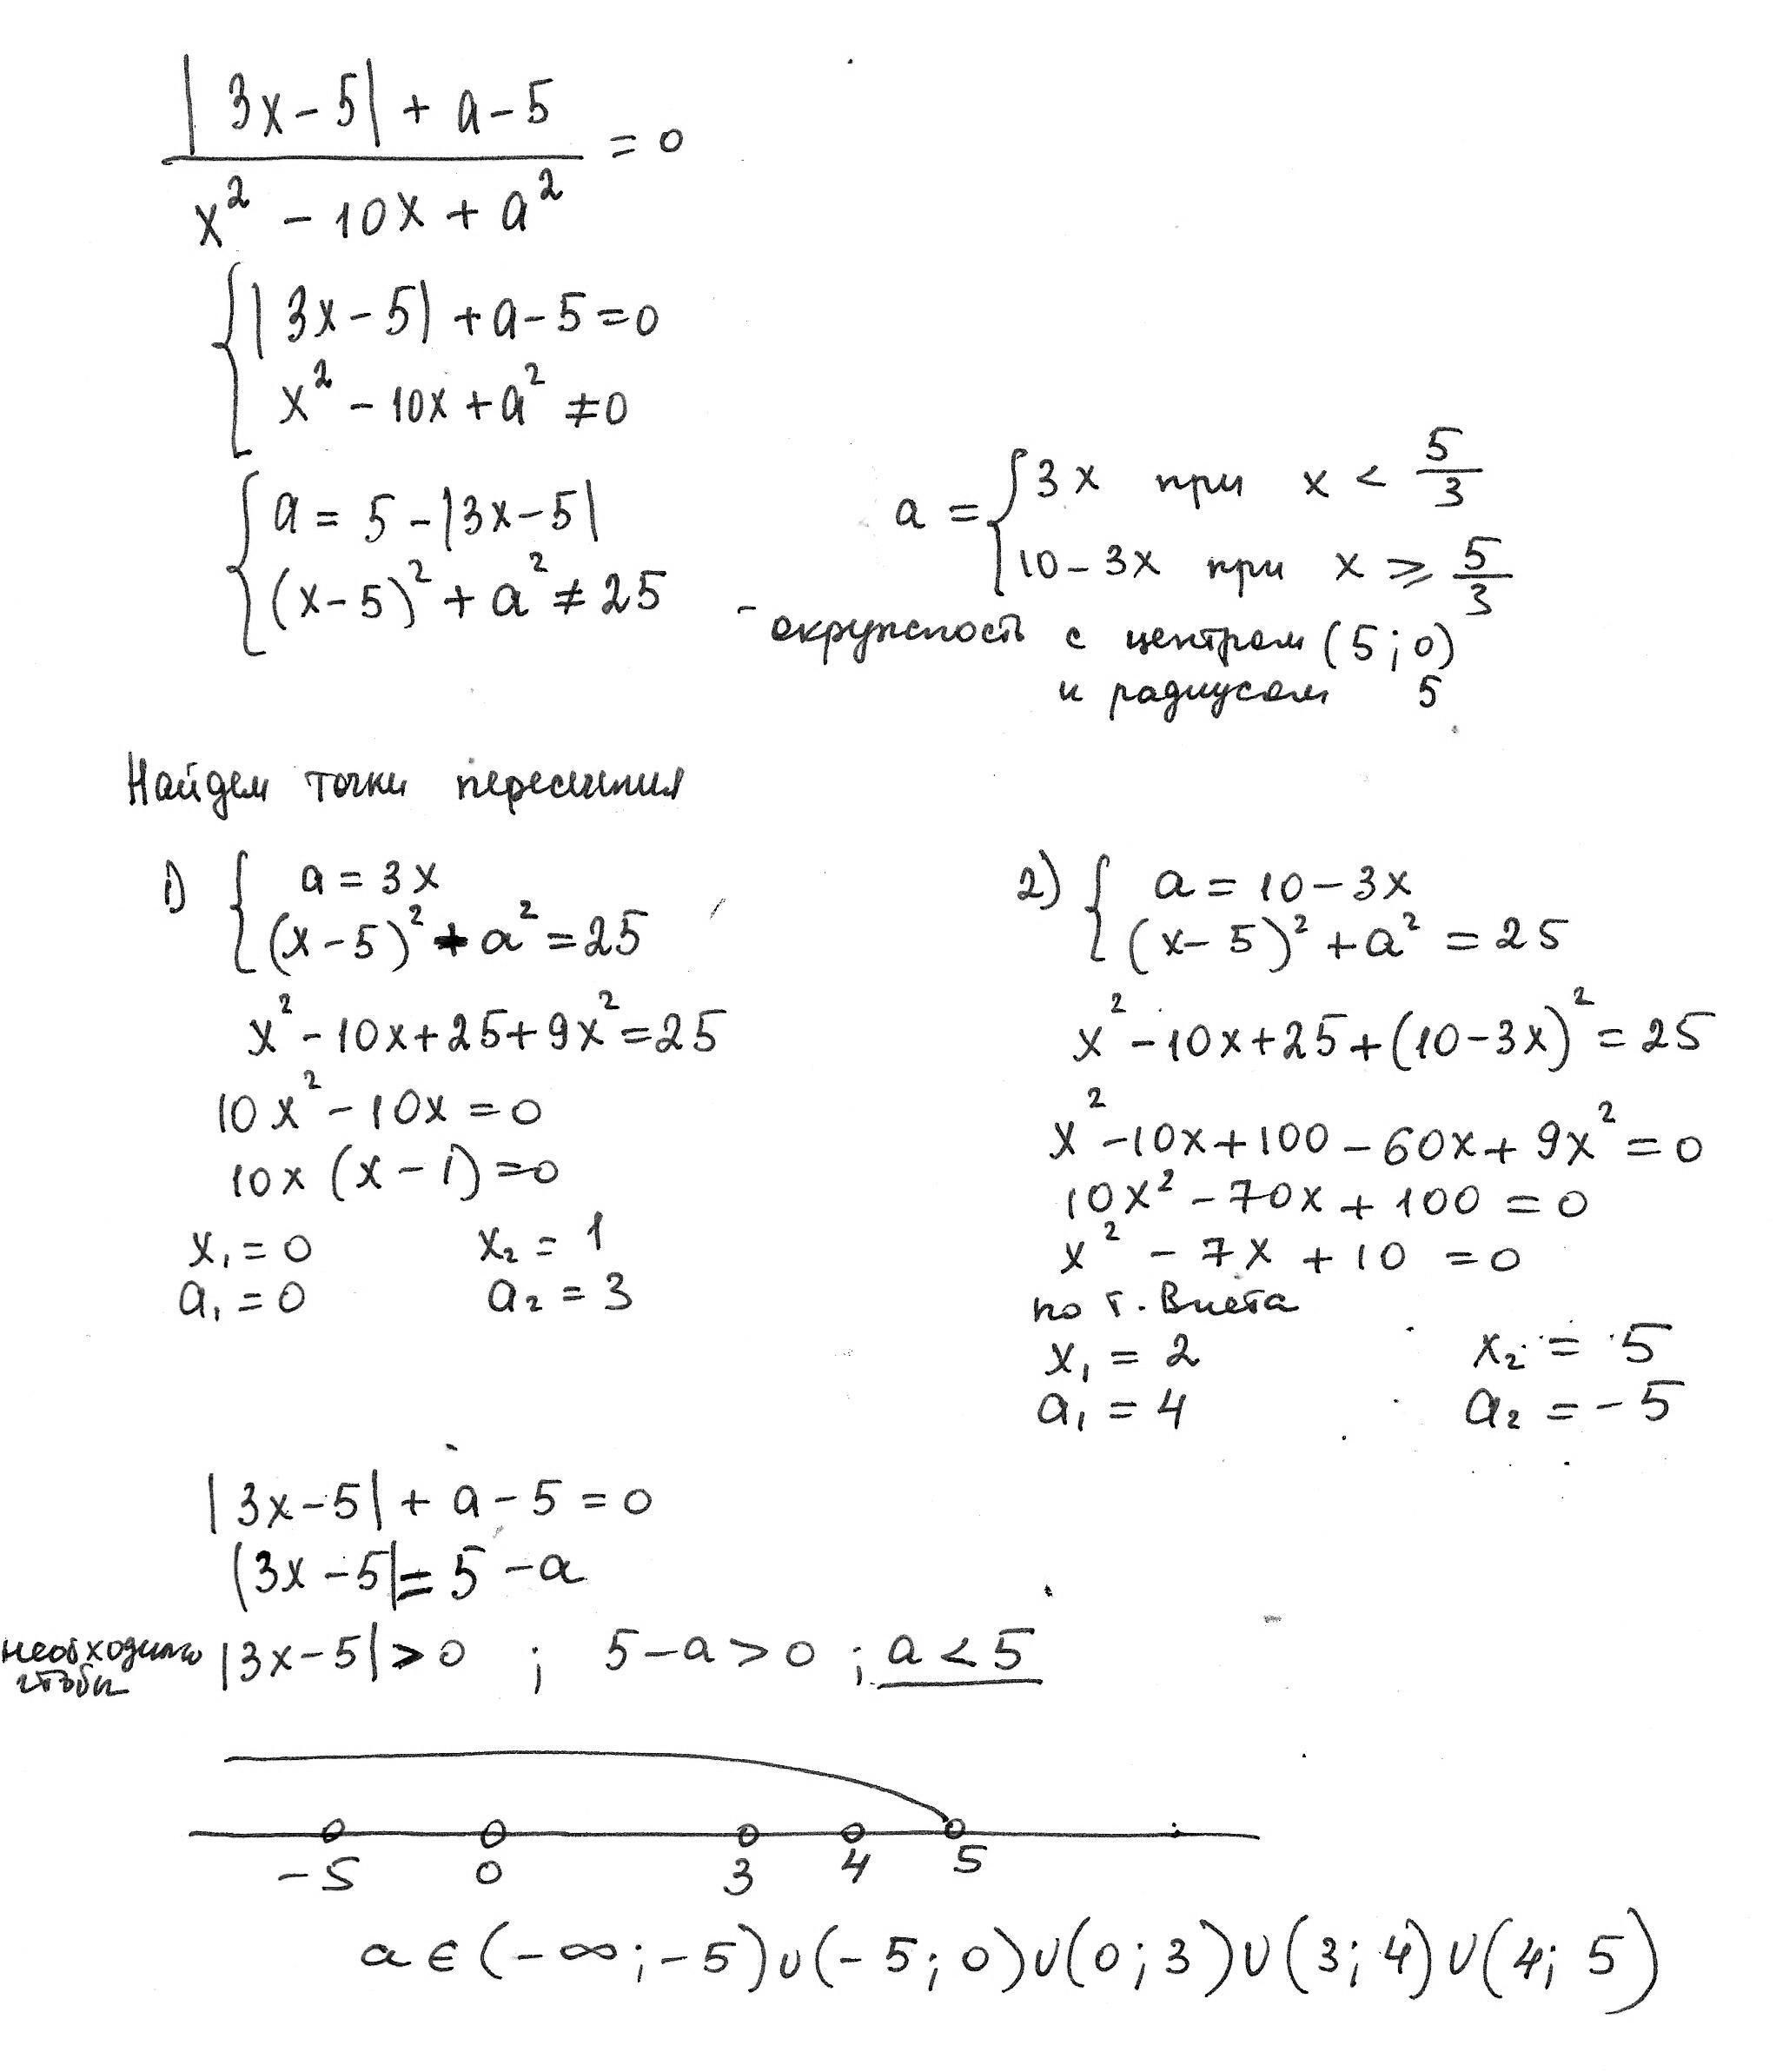 |3x-5| + a-5
―――――― = 0
x² - 10x + a²
{ |3x-5| + a-5 = 0
x² - 10x + a² ≠ 0
{ a = 5 - |3x-5|
(x-5)² + a² ≠ 25
a = { 3x при x < 5/3
10-3x при x ⩾ 5/3
- окружность с центром (5;0)
и радиусом 5
Найдем точки пересечения
1) { a = 3x
(x-5)² + a² = 25
x² - 10x + 25 + 9x² = 25
10x² - 10x = 0
10x (x-1) = 0
x₁ = 0 x₂ = 1
a₁ = 0 a₂ = 3
2) { a = 10-3x
(x-5)² + a² = 25
x² - 10x + 25 + (10-3x)² = 25
x² - 10x + 100 - 60x + 9x² = 0
10x² - 70x + 100 = 0
x² - 7x + 10 = 0
по т. Виета
x₁ = 2 x₂ = 5
a₁ = 4 a₂ = -5
|3x-5| + a - 5 = 0
|3x-5| = 5 - a
необходимо чтобы |3x-5| > 0 ; 5-a > 0 ; a < 5
-5 0 3 4 5
a ∈ (-∞; -5) ∪ (-5; 0) ∪ (0; 3) ∪ (3; 4) ∪ (4; 5)